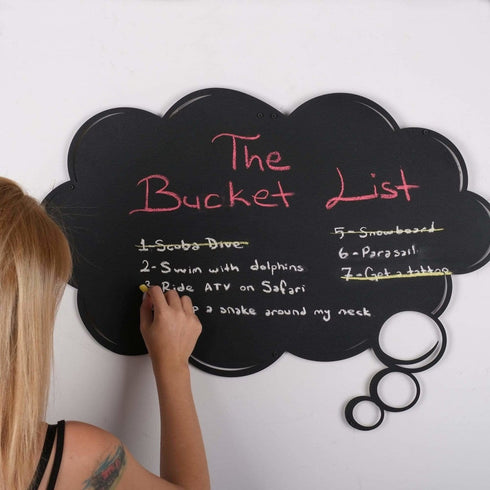 The
Bucket List
1-Scoba Dive
2-Swim with dolphins
3-Ride ATV on Safari
a snake around my neck
5-Snowboard
6-Parasail
7-Get a tattoo